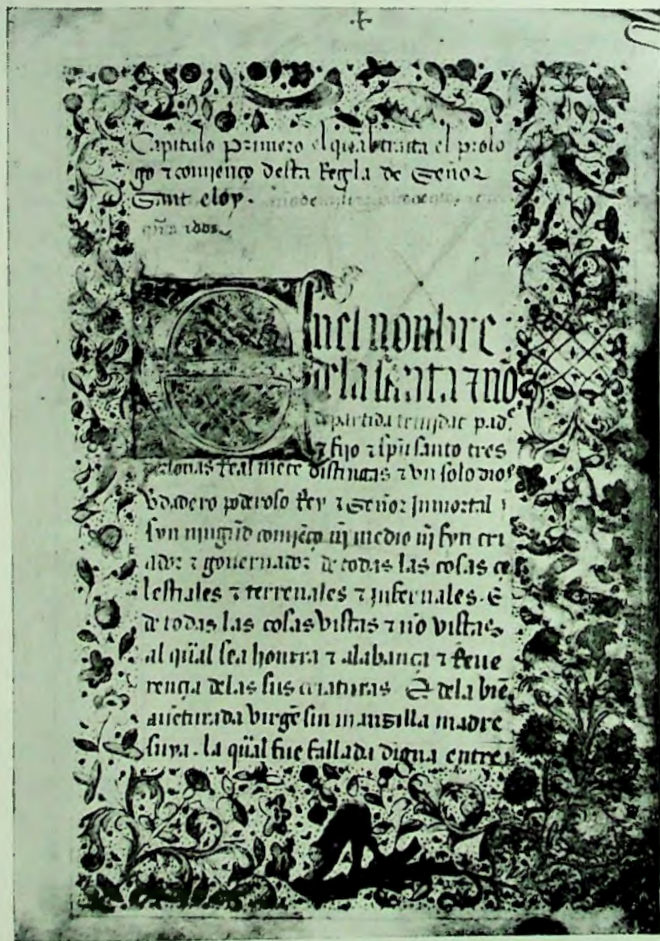 Capitulo primero el qual tracta el prolo
go ⁊ comienço desta Regla de Señor
Sant eloy.
En el nonbre
de la santa ⁊ no
departida trinidat padre
⁊ fijo ⁊ spu santo tres
personas Real mēte distintas ⁊ vn solo dios
Vdadero poderoso Rey ⁊ Señor Jnmortal
syn ningūd comiēço nj medio nj fyn cri
ador ⁊ gouernador de todas las cosas çe
lestiales ⁊ terrenales ⁊ jnfernales. E
de todas las cosas vistas ⁊ nō vistas
al qual sea honrra ⁊ alabança ⁊ Reue
rençia delas sus criaturas E dela biē
auēturada virgē sin manzilla madre
suya. la qual fue fallada digna entre